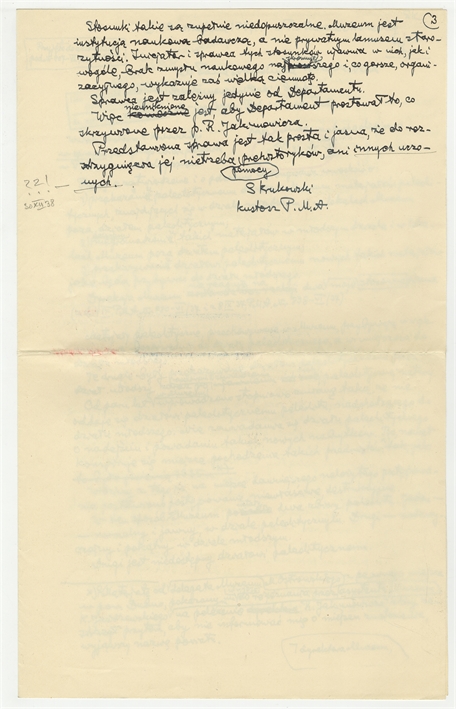 3
Stosunki takie są zupełnie niedopuszczalne. Muzeum jest
instytucją naukowo-badawczą, a nie prywatnym lamusem staro-
żytności. Inicjator i sprawca tych stosunków ujawnia w nich, jak i
wogóle, brak zmysłu naukowego i, co gorsze, organi-
zacyjnego, wykazuje zaś wielką
Sprawca jest zależny jedynie od Departamentu.
Więc jest, aby Departament prostował to, co
skrzywione przez p. R. Jakimowicza.
Przedstawiona sprawa jest tak prosta i jasna, że do roz-
strzygnięcia jej nietrzeba prehistoryków, ani innych uczo-
nych.
pomocy
? ? ! –
20.XII.38
S Krukowski
kustosz P. M. A.